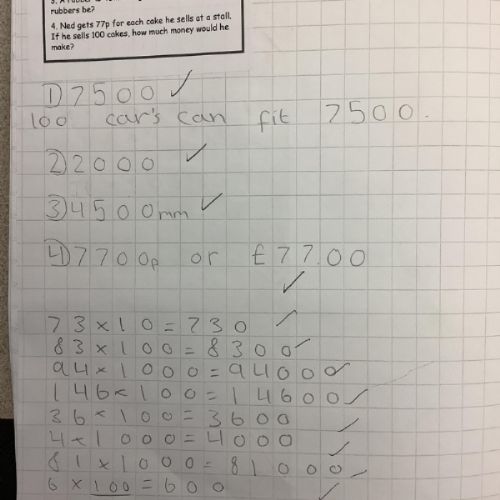 rubbers be?
4. Ned gets 77p for each cake he sells at a stall.
If he sells 100 cakes, how much money would he
make?
1) 7500 ✓
100 car's can fit 7500.
2) 2000 ✓
3) 4500mm ✓
4) 7700p or £77.00
✓
73 × 10 = 730 ✓
83 × 100 = 8300 ✓
94 × 1000 = 94000 ✓
146 × 100 = 14600 ✓
36 × 100 = 3600 ✓
4 × 1000 = 4000 ✓
81 × 1000 = 81000 ✓
6 × 100 = 600 ✓